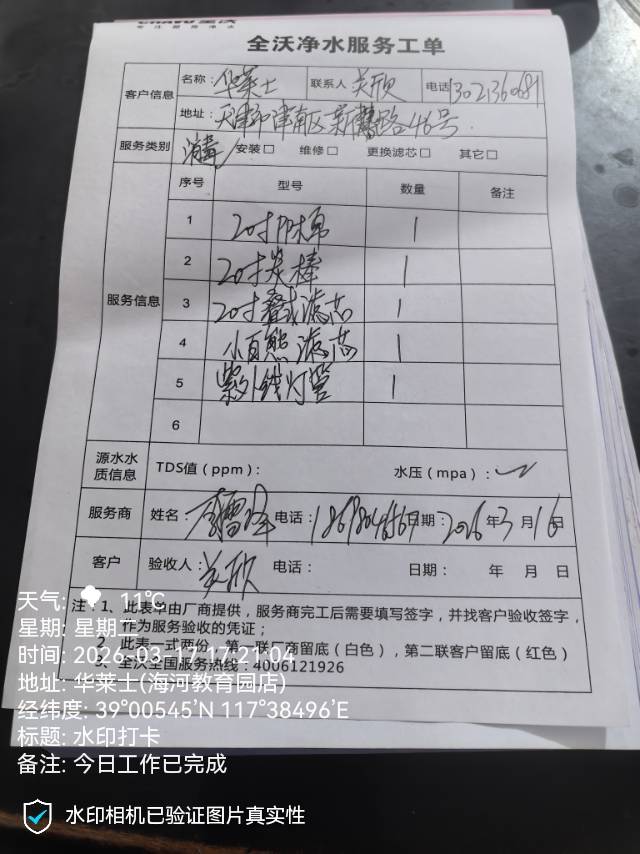 全沃净水服务工单
客户信息 名称：华莱士 联系人 关欣 电话
地址：天津市津南区新慧路46号
服务类别 消毒 安装□ 维修□ 更换滤芯□ 其它□
服务信息 序号 型号 数量 备注
1 20寸PP棉 1
2 20寸炭棒 1
3 20寸叠式滤芯 1
4 小白熊滤芯 1
5 紫外线灯管 1
6
源水水质信息 TDS值（ppm）： 水压（mpa）：✓
服务商 姓名： 电话： 日期：2026年3月16日
客户 验收人：关欣 电话： 日期： 年 月 日
注：1、此表单由厂商提供，服务商完工后需要填写签字，并找客户验收签字，
作为服务验收的凭证；
2、此表一式两份，第一联厂商留底（白色），第二联客户留底（红色）
3、全沃全国服务热线：4006121926
天气: 11℃
星期: 星期二
时间: 2026-03-17 17:21:04
地址: 华莱士(海河教育园店)
经纬度: 39°00545'N 117°38496'E
标题: 水印打卡
备注: 今日工作已完成
水印相机已验证图片真实性